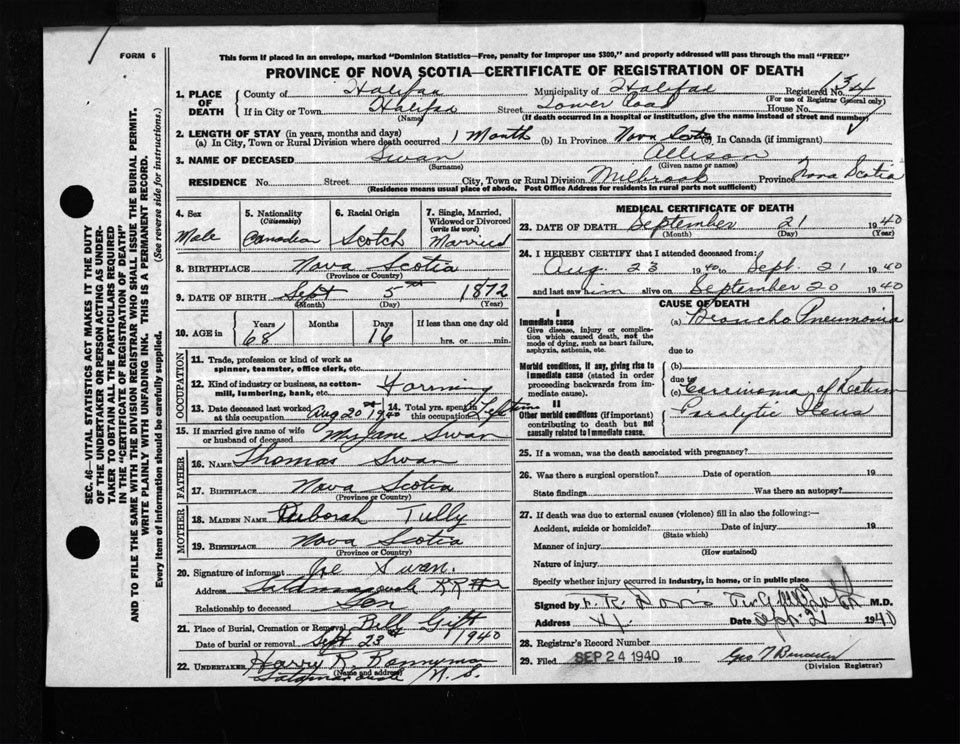 FORM 6
This form if placed in an envelope, marked "Dominion Statistics—Free, penalty for improper use $300," and properly addressed will pass through the mail "FREE"
PROVINCE OF NOVA SCOTIA—CERTIFICATE OF REGISTRATION OF DEATH
1. PLACE OF DEATH
County of Halifax Municipality of Halifax Registered No. 134
(For use of Registrar General only)
If in City or Town Halifax Street Tower Road House No.
(Name) (If death occurred in a hospital or institution, give the name instead of street and number)
2. LENGTH OF STAY (in years, months and days)
(a) In City, Town or Rural Division where death occurred 1 Month (b) In Province Nova Scotia (c) In Canada (if immigrant)
3. NAME OF DECEASED Swan Allison
Surname (Given name or names)
RESIDENCE No. Street City, Town or Rural Division Milbrook Province Nova Scotia
(Residence means usual place of abode. Post Office Address for residents in rural parts not sufficient)
SEC. 46—VITAL STATISTICS ACT MAKES IT THE DUTY
OF THE UNDERTAKER OR PERSON ACTING AS UNDER-
TAKER TO OBTAIN ALL THE PARTICULARS REQUIRED
IN THE "CERTIFICATE OF REGISTRATION OF DEATH"
AND TO FILE THE SAME WITH THE DIVISION REGISTRAR WHO SHALL ISSUE THE BURIAL PERMIT.
WRITE PLAINLY WITH UNFADING INK. THIS IS A PERMANENT RECORD.
Every item of Information should be carefully supplied. (See reverse side for instructions.)
4. Sex
Male
5. Nationality
(Citizenship)
Canadian
6. Racial Origin
Scotch
7. Single, Married, Widowed or Divorced
(write the word)
Married
8. BIRTHPLACE Nova Scotia
(Province or Country)
9. DATE OF BIRTH Sept 5th 1872
(Month) (Day) (Year)
10. AGE in Years Months Days If less than one day old
68 16 hrs. or min.
OCCUPATION
11. Trade, profession or kind of work as
spinner, teamster, office clerk, etc.
12. Kind of industry or business, as cotton-
mill, lumbering, bank, etc. Farming
13. Date deceased last worked at this occupation Aug 20 1940
14. Total yrs. spent in this occupation Lifetime
15. If married give name of wife
or husband of deceased Swan
FATHER
16. NAME Thomas Swan
17. BIRTHPLACE Nova Scotia
(Province or Country)
MOTHER
18. MAIDEN NAME Deborah Tully
19. BIRTHPLACE Nova Scotia
(Province or Country)
20. Signature of informant Joe Swan.
Address RR #2
Relationship to deceased Son
21. Place of Burial, Cremation or Removal Gift
Date of burial or removal Sept 23rd 1940
22. UNDERTAKER Harry R.
(Name and address)
N. S.
MEDICAL CERTIFICATE OF DEATH
23. DATE OF DEATH September 21 1940
(Month) (Day) (Year)
24. I HEREBY CERTIFY that I attended deceased from:
Aug. 23 1940 to Sept. 21 1940
and last saw him alive on September 20 1940
CAUSE OF DEATH
I
Immediate cause
Give disease, injury or complica-
tion which caused death, not the
mode of dying, such as heart failure,
asphyxia, asthenia, etc.
(a) Broncho Pneumonia
due to
Morbid conditions, if any, giving rise to
immediate cause (stated in order
proceeding backwards from im-
mediate cause).
(b)
due to
(c) Carcinoma of Rectum
II
Other morbid conditions (if important)
contributing to death but not
causally related to immediate cause.
Paralytic Ileus
25. If a woman, was the death associated with pregnancy?
26. Was there a surgical operation? Date of operation 19
State findings Was there an autopsy?
27. If death was due to external causes (violence) fill in also the following:—
Accident, suicide or homicide? Date of injury 19
(State which)
Manner of injury
(How sustained)
Nature of injury
Specify whether injury occurred in industry, in home, or in public place
Signed by F. R. Davis M.D.
Address Date Sept. 21 1940
28. Registrar's Record Number
29. Filed SEP 24 1940 19
(Division Registrar)